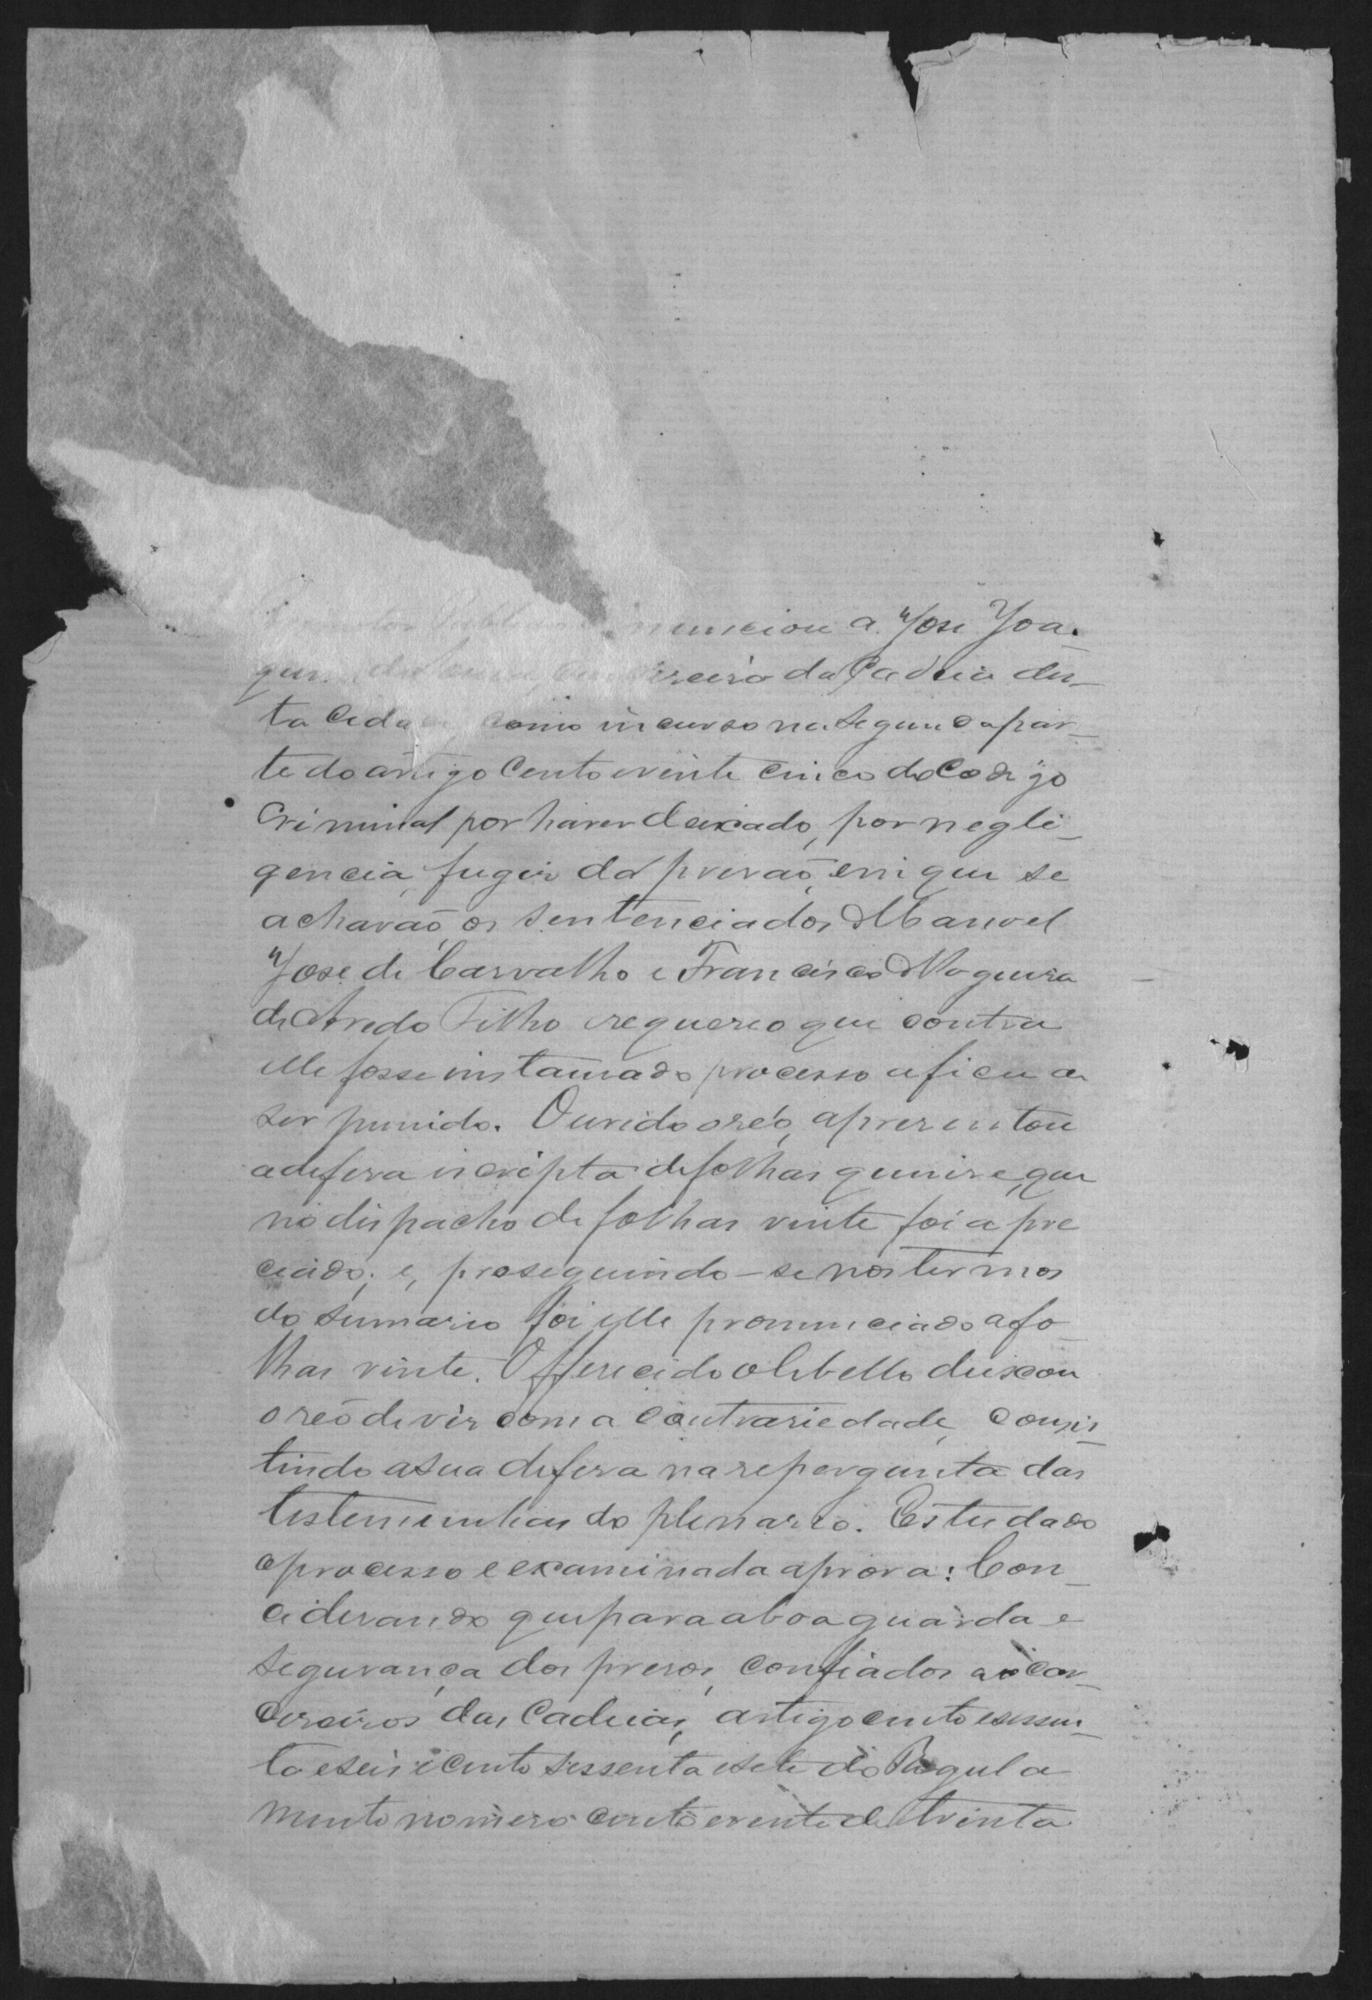 Publico denunciou a José Joa-
quim carcereiro da Cadeia des-
ta Cidade como incurso na segunda par-
te do artigo Cento e vinte cinco do Codigo
Criminal por haver deixado, por negli-
gencia, fugir da prizão, em que se
achavão os sentenciados Manoel
José de Carvalho e Francisco Nogueira
de Azredo Filho e requereo que contra
elle fosse instaurado processo afim de
ser punido. Ouvido o réo, apresentou
a defesa escripta de folhas quinse, que
no dispacho de folhas vinte foi apre
ciado; e, proseguindo-se nos termos
do sumario foi elle pronunciado a fo-
lhas vinte. Offerecido o libello deixou
o reo de vir com a contrariedade, consis-
tindo a sua defesa na repergunta das
testemunhas do plenario. Estudado
o processo e examinada a prova: Con-
ciderando que para a boa guarda e
segurança dos presos, confiados aos car-
cereiros das Cadeias, artigo cento e sessen-
ta e seis e cento sessenta e sete do Regula
mento nomero cento e vinte de trinta